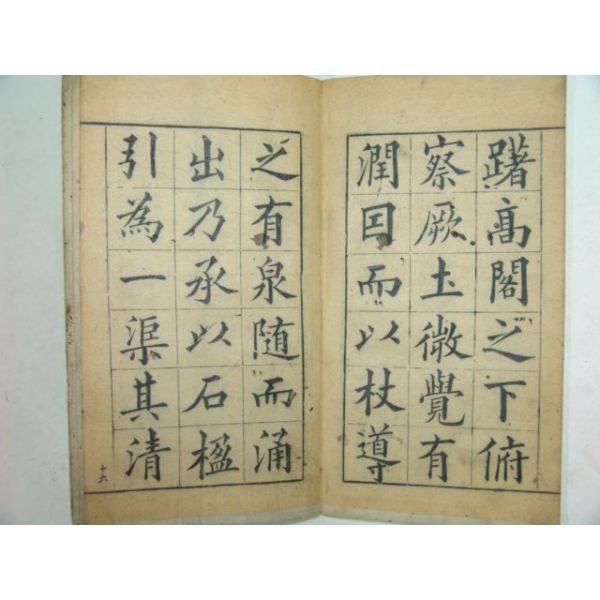 躇高閣之下俯
察厥土微覺有
潤因而以杖導
之有泉随而涌
出乃承以石檻
引為一渠其清
十六